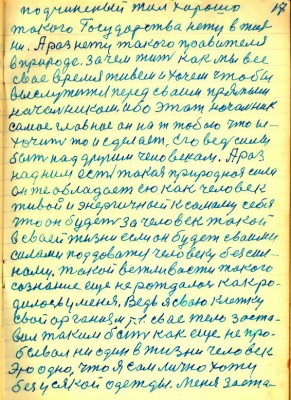 подчиненый жил хорошо
такого Государства нету в жиз
ни. А раз нету такого правителя
в природе. Зачем жить как мы все
свае время живем и хочем чтобы
выслужитя перед своим прямым
начальником. ибо этат начальник
самое главное он над тобою что и-
хочить то и сделает. Его ведь силы
быть над другим человеком. А раз
над ним есть такая природная сила
он те обладает ею как человек
живой и энергичный к самому себя
что он будеть за человек такой
в своей жизни если он будет своими
силами поддоважу человеку бессиль-
ному. Такой вежливости такого
сознание еще не рождалось как ро-
дилось у меня. Ведь я свою клетку
свой организм т.е. свае тело заста-
вил таким быть как еще не про-
бывал ни один в жизни человек
Это одно, что я сам лично хожу
без усякой одежды. Меня заста-